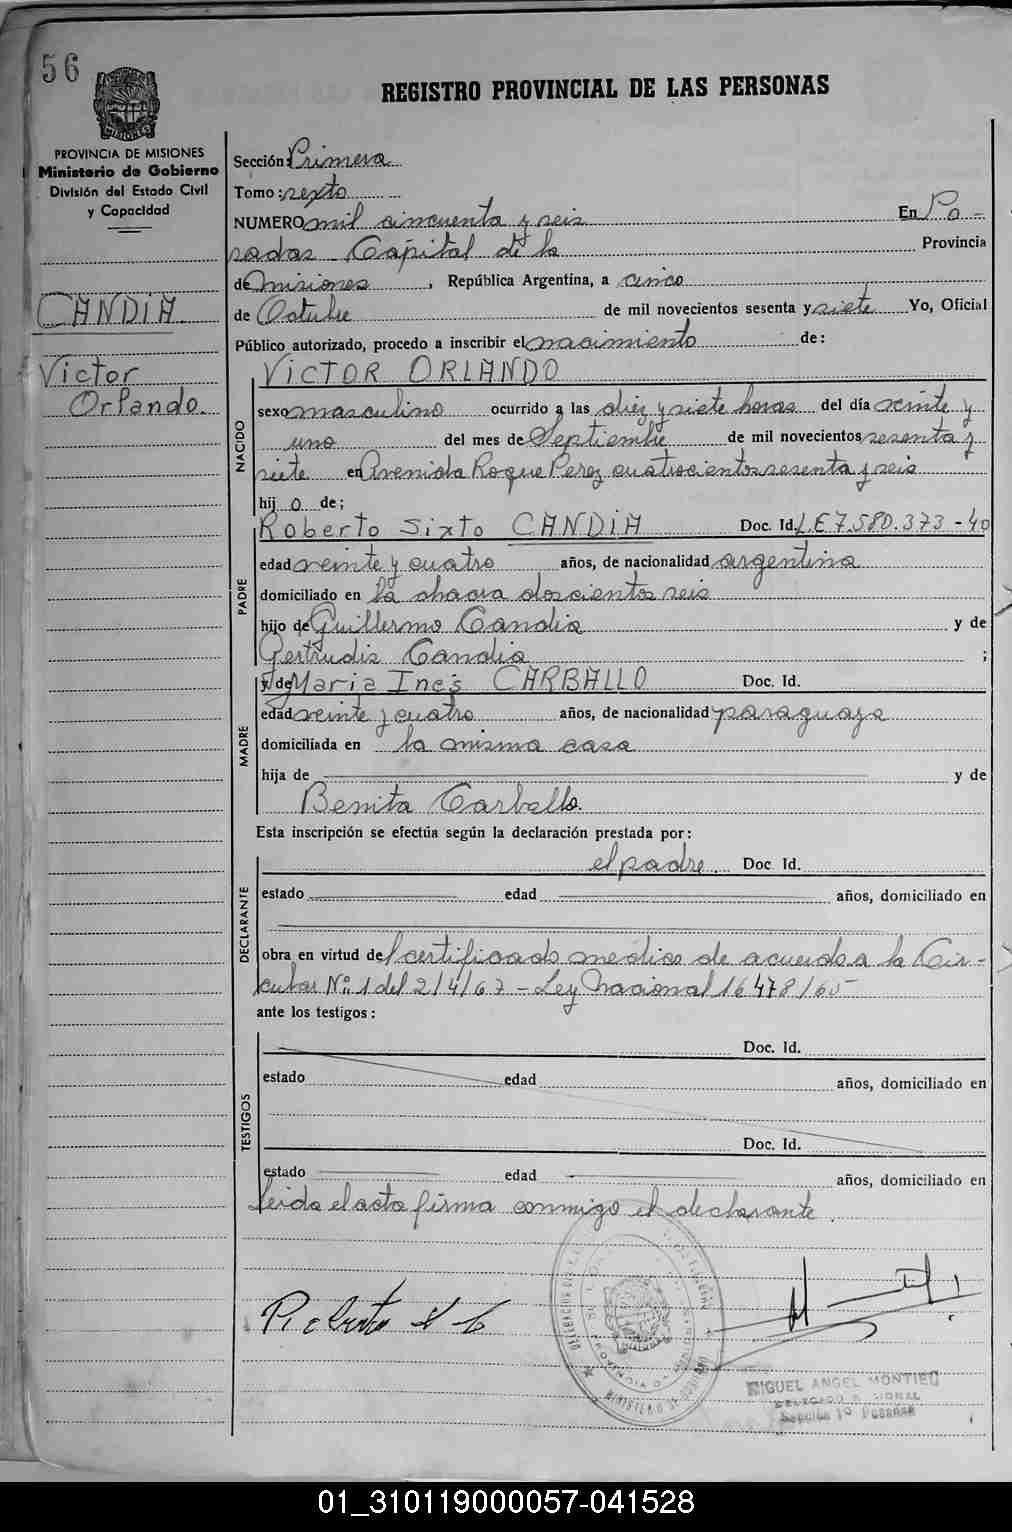 56
REGISTRO PROVINCIAL DE LAS PERSONAS
MISIONES
PROVINCIA DE MISIONES
Ministerio de Gobierno
División del Estado Civil
y Capacidad
CANDIA
Victor
Orlando.
Sección: Primera
Tomo: sexto
NUMERO mil cincuenta y seis En Po-
sadas Capital de la Provincia
de Misiones, República Argentina, a cinco
de Octubre de mil novecientos sesenta y siete Yo, Oficial
Público autorizado, procedo a inscribir el nacimiento de:
NACIDO
VICTOR ORLANDO
sexo masculino ocurrido a las diez y siete horas del día veinte y
uno del mes de Septiembre de mil novecientos sesenta y
siete en Avenida Roque Perez cuatrocientos sesenta y seis
hijo de;
PADRE
Roberto Sixto CANDIA Doc. Id. L E 7.580.373-40
edad veinte y cuatro años, de nacionalidad argentina
domiciliado en la chacra doscientos seis
hijo de Guillermo Candia y de
Gertrudis Candia ;
MADRE
y de Maria Inés CARBALLO Doc. Id.
edad veinte y cuatro años, de nacionalidad paraguaya
domiciliada en la misma casa
hija de y de
Benita Carballo.
Esta inscripción se efectúa según la declaración prestada por:
DECLARANTE
el padre. Doc. Id.
estado edad años, domiciliado en
obra en virtud del certificado medico de acuerdo a la Cir-
cular Nº 1 del 2/4/67 - Ley Nacional 16478/65
ante los testigos:
TESTIGOS
Doc. Id.
estado edad años, domiciliado en
Doc. Id.
estado edad años, domiciliado en
Leida el acta firma conmigo el declarante.
MIGUEL ANGEL MONTIEL
Sección 1º Posadas
01_310119000057-041528